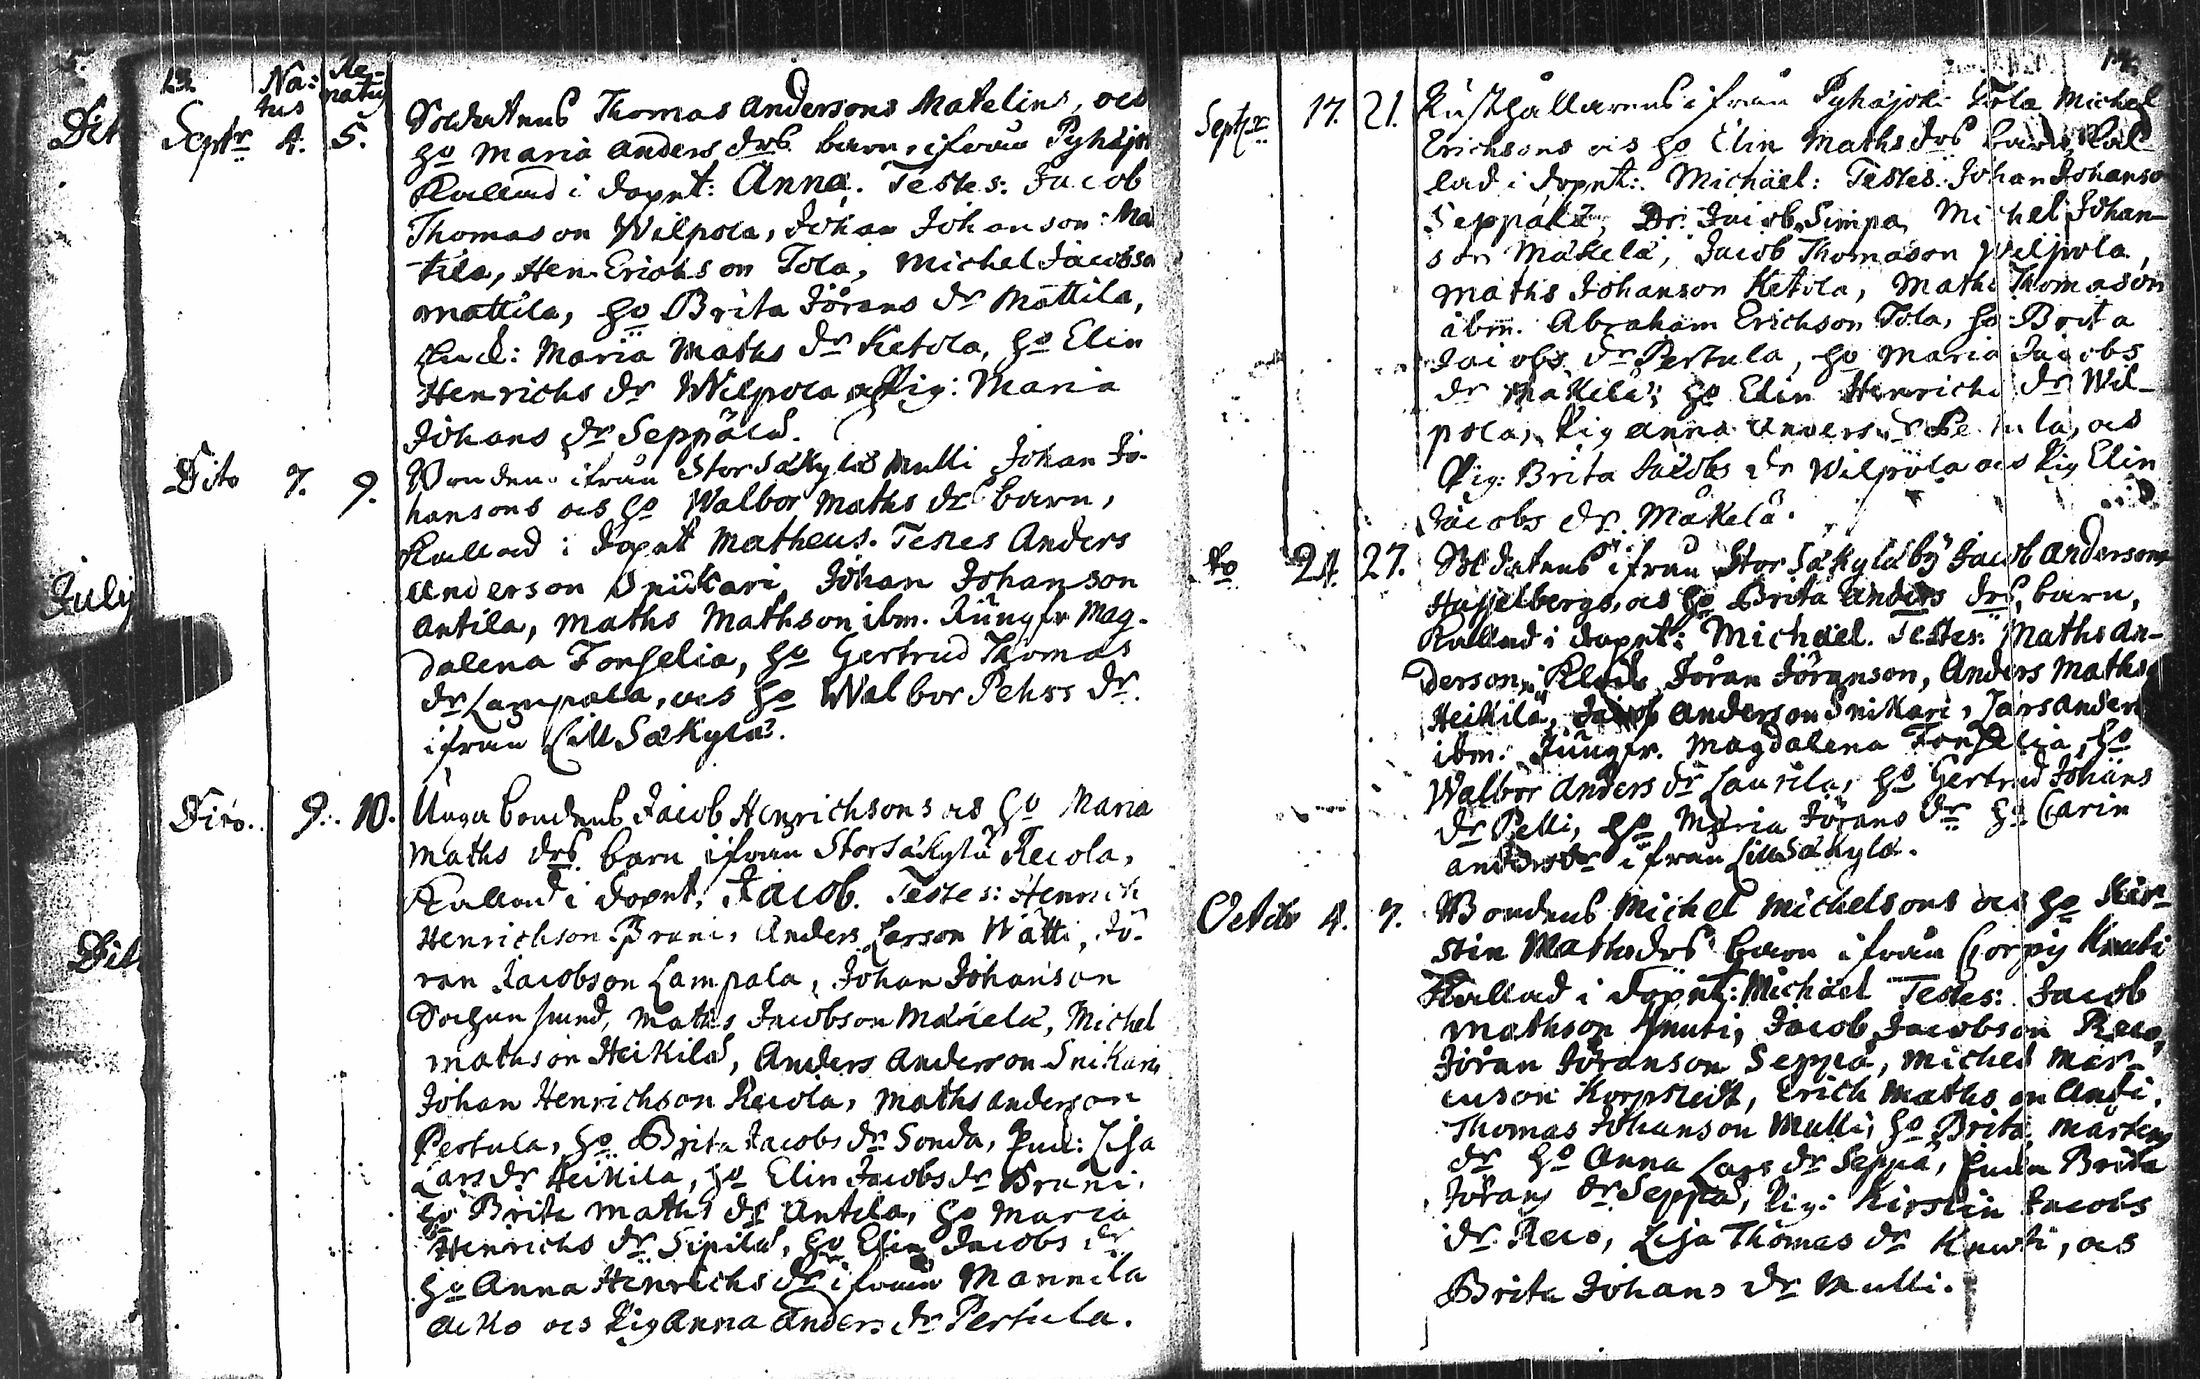 13.
Na: Re-
tus natus
Dit
Septr 4. 5. Soldatens Thomas Andersons Matelins, och
ho Maria Anders drs barn, ifrån Pyhäjo
Kallad i dopnt: Anna. Testes: Jacob
Thomason Wilpola, Johan Johanson: Ma
tila, Hen. Erichson Tola, Michel Jacobso
Mattila, ho Brita Jörans dr Mattila,
Maria Maths dr Ketola, ho Elin
Henrichs dr Wilpola Pig: Maria
Johans dr Seppälä.
Dito 7. 9. Bonden ifrån Stor Säkylä Mulli Johan Jo-
hansons och ho Walbor Maths dr barn,
Kallad i dopnt Matheus. Testes Anders
Anderson Snikkari, Johan Johanson
Antila, Maths Mathson ibm. Jungfr Mag-
dalena Fonselia, ho Gertrud Thomas
dr Lampola, och ho Walbor Pehrs dr.
ifrån Lill Säkylä.
July
Dito. 9. 10. Unga bondens Jacob Henrichsons och ho Maria
Maths drs barn ifrån Stor Säkylä Recola,
Kallad i dopnt, Jacob. Testes: Henrich
Henrichson Pruni, Anders Larson Wätti, Jö-
ran Jacobson Lampala, Johan Johanson
Maths Jacobson Mäkelä, Michel
Mathson Heikilä, Anders Anderson Snikari
Johan Henrichson Recola, Maths Anderson
Pertula, ho Brita Jacobs dr Sonda, Lisa
Lars dr Heikila, ho Elin Jacobs dr Pruni.
ho Brita Maths dr Antila, ho Maria
Henrichs dr Sipilä, ho Elin Jacobs dr
ho Anna Henrichs dr ifrån Mannila
och Pig Anna Anders dr Pertula.
Dit
14.
Septr 17. 21. Rusthållarens ifrån Pyhäjoki Tola Michel
Erichsons och ho Elin Maths drs barn, Kal-
lad i dopnt: Michäel: Testes: Johan Johanso
Seppälä, Dr: Jacob Simpa, Michel Johan-
son Mäkelä, Jacob Thomason Wilpola,
Maths Johanson Ketola, Maths Thomason
ibm. Abraham Erichson Tola, ho Brita
Jacobs dr Pertula, ho Maria Jacobs
dr Mäkilä, ho Elin Henrichs dr Wil-
pola, Pig Anna Anders dr Pertula, och
Pig: Brita Jacobs dr Wilpola och Pig Elin
Jacobs dr. Mäkelä.
to 24. 27. Soldatens ifrån Stor Säkylä by Jacob Andersons
Hasselbergs, och ho Brita Anders drs, barn,
Kallad i dopnt: Michäel. Testes: Maths An-
derson, Jöran Jöranson, Anders Maths
Heikilä, Jacob Anderson Snikari, Lars Anders
ibm: Jungfr. Magdalena Fonselia, ho
Walbor Anders dr Laurila, ho Gertrud Johans
dr Pelli, ho Maria Jörans dr ho Carin
Anders dr ifrån Lill Säkylä.
Octobr 4. 7. Bondens Michel Michelsons och ho Kir-
stin Maths drs barn ifrån Corpy Knuti
Kallad i dopnt: Michäel Testes: Jacob
Mathson Knuti, Jacob Jacobson Reco,
Jöran Jöranson Seppä, Michel Mar-
cuson Korpstedt, Erich Mathson Anti,
Thomas Johanson Mulli, ho Brita Mårtens
dr ho Anna Lars dr Seppä, Brita
Jörans dr Seppä, Pig: Kirstin Jacobs
dr. Reco, Lisa Thomas dr Knuti, och
Brita Johans dr Mulli.